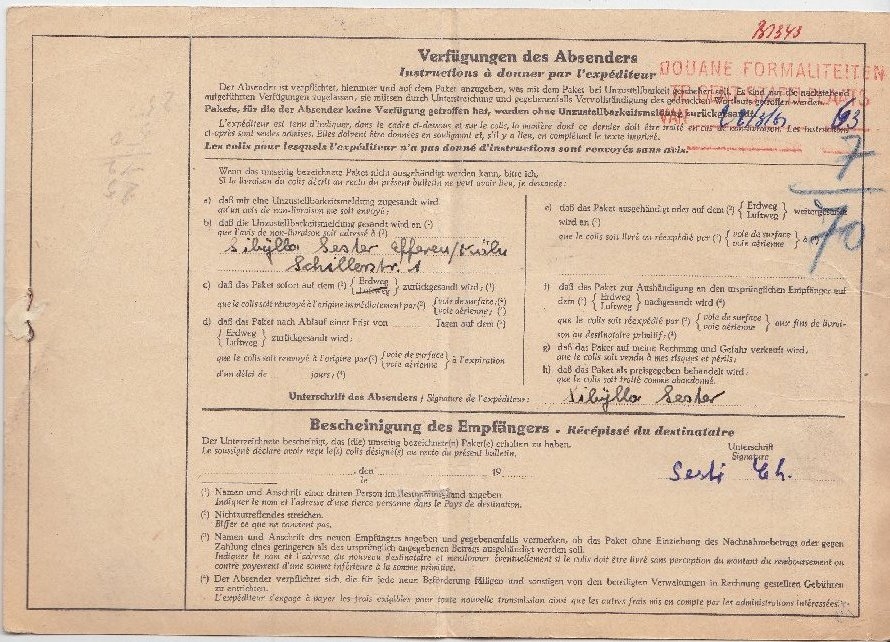 Verfügungen des Absenders
Instructions à donner par l'expéditeur
DOUANE FORMALITEITEN
Der Absender ist verpflichtet, hierunter und auf dem Paket anzugeben, was mit dem Paket bei Unzustellbarkeit geschehen soll. Es sind nur die nachstehend
aufgeführten Verfügungen zugelassen, sie müssen durch Unterstreichung und gegebenenfalls Vervollständigung des gedruckten Wortlauts getroffen werden.
Pakete, für die der Absender keine Verfügung getroffen hat, werden ohne Unzustellbarkeitsmeldung zurückgesandt.
L'expéditeur est tenu d'indiquer, dans le cadre ci-dessous et sur le colis, la manière dont ce dernier doit être traité en cas de non-livraison. Les instructions
ci-après sont seules admises. Elles doivent être données en soulignant et, s'il y a lieu, en complétant le texte imprimé.
Les colis pour lesquels l'expéditeur n'a pas donné d'instructions sont renvoyés sans avis.
7
70
Wenn das umseitig bezeichnete Paket nicht ausgehändigt werden kann, bitte ich,
Si la livraison du colis décrit au recto du présent bulletin ne peut avoir lieu, je demande:
a) daß mir eine Unzustellbarkeitsmeldung zugesandt wird,
qu'un avis de non-livraison me soit envoyé;
b) daß die Unzustellbarkeitsmeldung gesandt wird an (¹)
que l'avis de non-livraison soit adressé à (¹)
Sibylla Sester Efferen/Köln
Schillerstr. 1
c) daß das Paket sofort auf dem (²) { Erdweg Luftweg } zurückgesandt wird; (⁴)
que le colis soit renvoyé à l'origine immédiatement par (²) { voie de surface; (⁴) voie aérienne; (⁴)
d) daß das Paket nach Ablauf einer Frist von Tagen auf dem (²)
{ Erdweg Luftweg } zurückgesandt wird;
que le colis soit renvoyé à l'origine par (²) { voie de surface voie aérienne } à l'expiration
d'un délai de jours; (⁴)
e) daß das Paket ausgehändigt oder auf dem (²) { Erdweg Luftweg } weitergesandt
wird an (³)
que le colis soit livré ou réexpédié par (²) { voie de surface voie aérienne } à (³)
f) daß das Paket zur Aushändigung an den ursprünglichen Empfänger auf
dem (²) { Erdweg Luftweg } nachgesandt wird (⁴)
que le colis soit réexpédié par (²) { voie de surface voie aérienne } aux fins de livrai-
son au destinataire primitif; (⁴)
g) daß das Paket auf meine Rechnung und Gefahr verkauft wird,
que le colis soit vendu à mes risques et périls;
h) daß das Paket als preisgegeben behandelt wird;
que le colis soit traité comme abandonné.
Unterschrift des Absenders; Signature de l'expéditeur: Sibylla Sester
Bescheinigung des Empfängers - Récépissé du destinataire
Der Unterzeichnete bescheinigt, das (die) umseitig bezeichnete(n) Paket(e) erhalten zu haben.
Le soussigné déclare avoir reçu le(s) colis désigné(s) au recto du présent bulletin.
Unterschrift
Signature
, den 19
le
(¹) Namen und Anschrift einer dritten Person im Bestimmungsland angeben
Indiquer le nom et l'adresse d'une tierce personne dans le Pays de destination.
(²) Nichtzutreffendes streichen.
Biffer ce que ne convient pas.
(³) Namen und Anschrift des neuen Empfängers angeben und gegebenenfalls vermerken, ob das Paket ohne Einziehung des Nachnahmebetrags oder gegen
Zahlung eines geringeren als des ursprünglich angegebenen Betrags ausgehändigt werden soll.
Indiquer le nom et l'adresse du nouveau destinataire et mentionner éventuellement si le colis doit être livré sans perception du montant du remboursement ou
contre payement d'une somme inférieure à la somme primitive.
(⁴) Der Absender verpflichtet sich, die für jede neue Beförderung fälligen und sonstigen von den beteiligten Verwaltungen in Rechnung gestellten Gebühren
zu entrichten.
L'expéditeur s'engage à payer les frais exigibles pour toute nouvelle transmission ainsi que les autres frais mis en compte par les administrations intéressées.